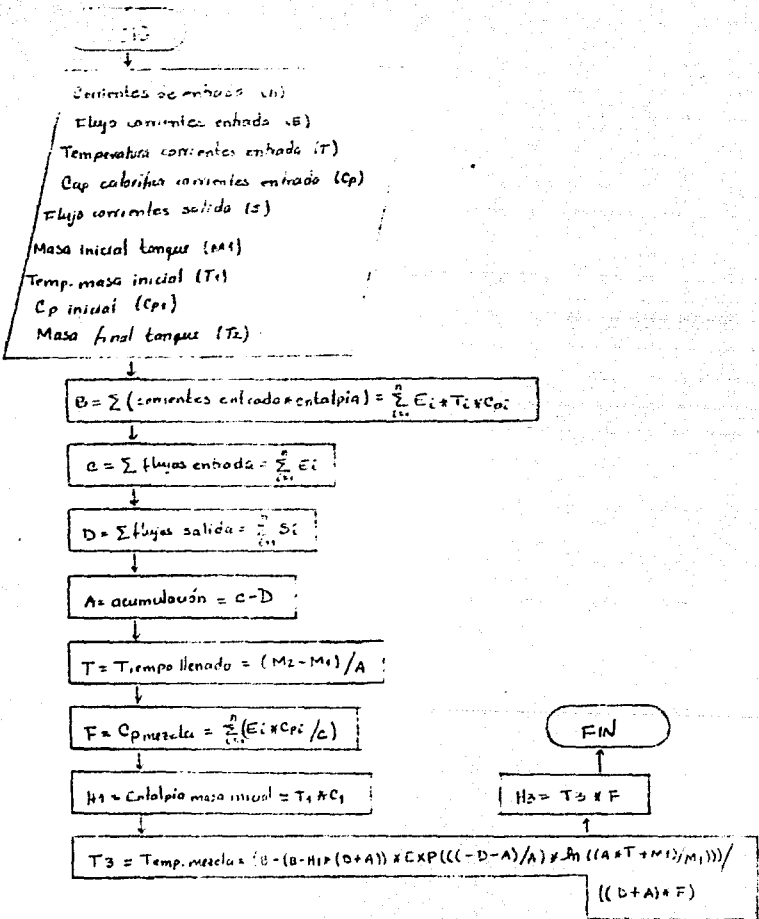 Corrientes de entrada (n)
Flujo corrientes entrada (E)
Temperatura corrientes entrada (T)
Cap calorifica corrientes entrada (Cp)
Flujo corrientes salida (S)
Masa inicial tanque (M1)
Temp. masa inicial (T1)
Cp inicial (Cp1)
Masa final tanque (T2)
B = ∑ (corrientes entrada * entalpia) = ∑ⁿᵢ₌₁ Ei * Ti * Cpi
C = ∑ flujos entrada = ∑ⁿᵢ₌₁ Ei
D = ∑ flujos salida = ∑ⁿᵢ₌₁ Si
A = acumulación = C - D
T = Tiempo llenado = (M2 - M1) / A
F = Cp mezcla = ∑ⁿᵢ₌₁ (Ei * Cpi / C)
FIN
H1 = Entalpia masa inicial = T1 * C1
H3 = T3 * F
T3 = Temp. mezcla = (B - (B - H1 * (D + A)) * EXP(((-D - A) / A) * ln ((A * T + M1) / M1))) /
((D + A) * F)